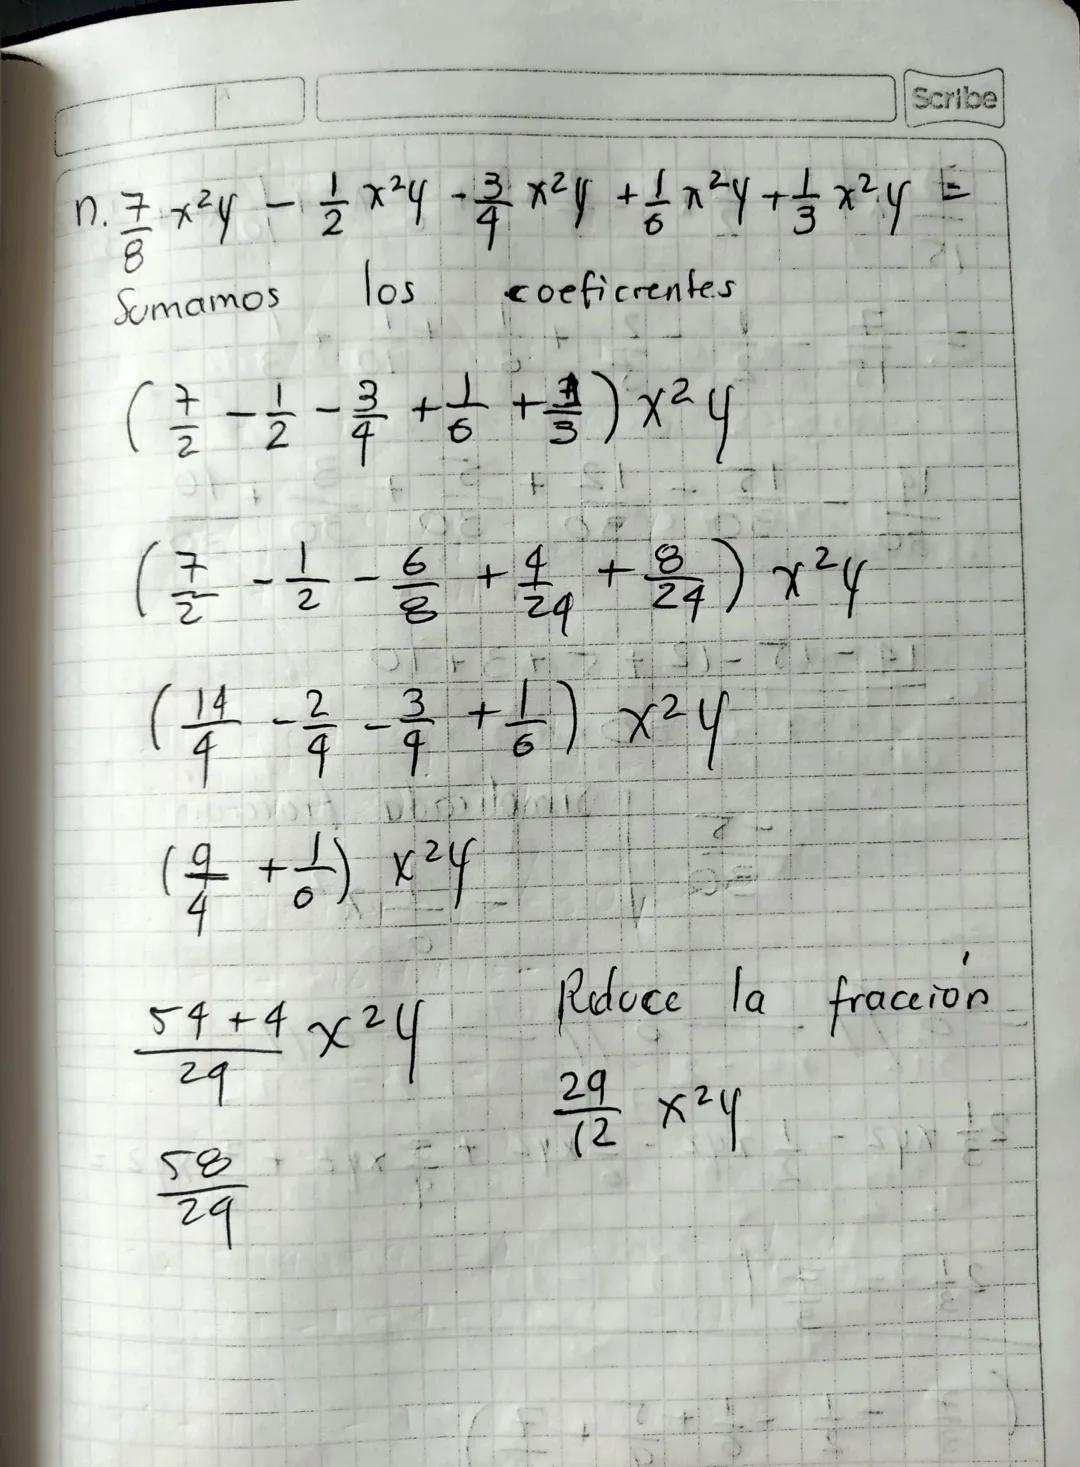 Scribe
n. 7/8 x²y - 1/2 x²y - 3/4 x²y + 1/6 x²y + 1/3 x²y =
Sumamos los coeficientes
(7/2 - 1/2 - 3/4 + 1/6 + 1/3) x²y
(7/2 - 1/2 - 6/8 + 4/24 + 8/24) x²y
(14/4 - 2/4 - 3/4 + 1/6) x²y
(9/4 + 1/6) x²y
54+4/24 x²y
58/24
Reduce la fracción
29/12 x²y